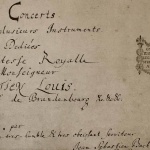 Concerts
plusieurs Instruments
Dediées
Altesse Royalle
Monseigneur
Louis
de Brandenbourg &c.&c.&c.
par
tres obeissant serviteur
Jean Sebastien